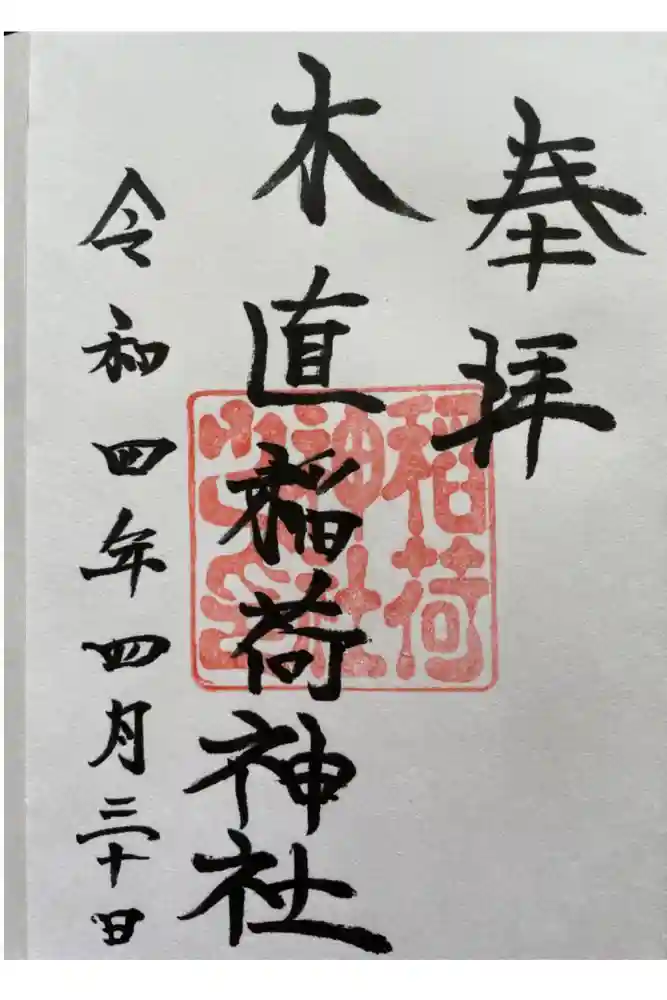 奉拝
木直稲荷神社
令和四年四月三十日
稲荷
神社